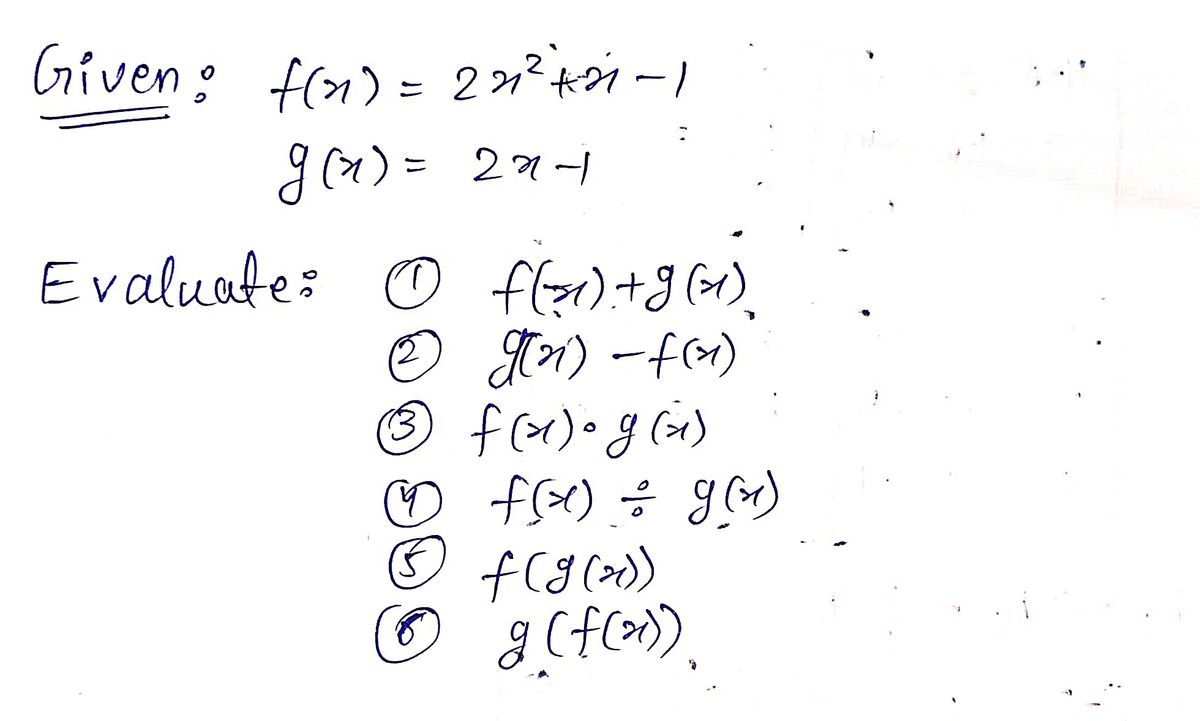 Given: f(x) = 2x²+x-1
g(x) = 2x-1
Evaluate: ① f(x)+g(x)
② g(x) - f(x)
③ f(x)∘g(x)
④ f(x) ÷ g(x)
⑤ f(g(x))
⑥ g(f(x))